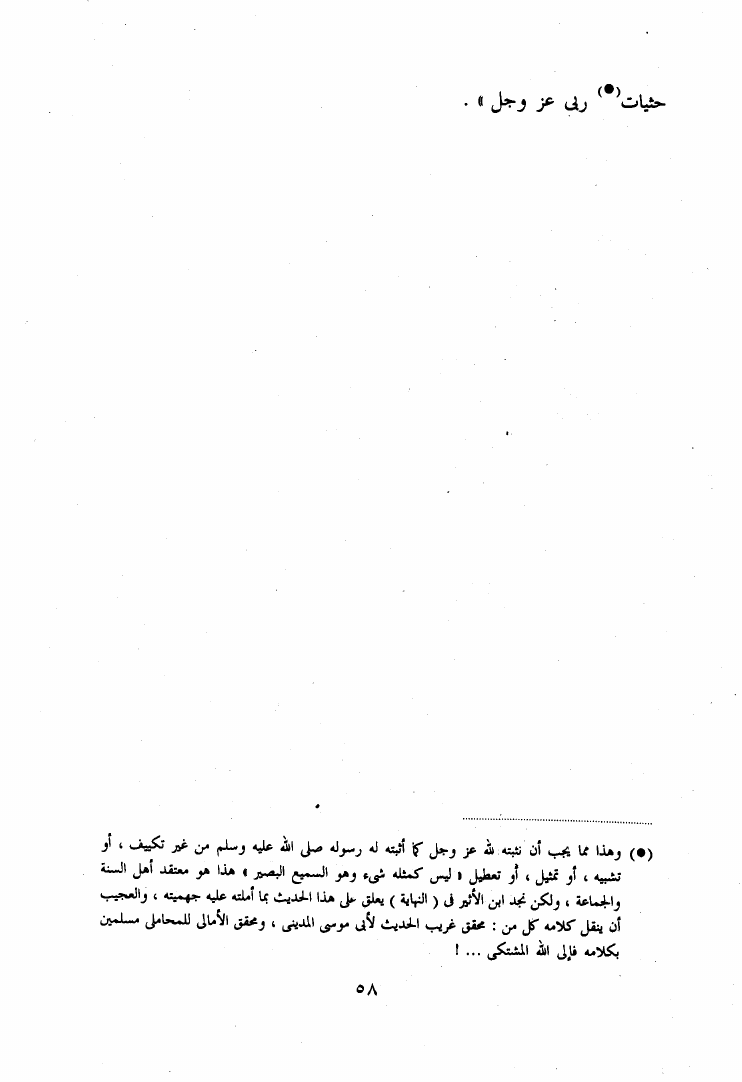 حثيات(●) ربى عز وجل » .
(●) وهذا مما يجب أن نثبته لله عز وجل كما أثبته له رسوله صلى الله عليه وسلم من غير تكييف ، أو
تشبيه ، أو تمثيل ، أو تعطيل « ليس كمثله شىء وهو السميع البصير » هذا هو معتقد أهل السنة
والجماعة ، ولكن نجد ابن الأثير فى ( النهاية ) يعلق على هذا الحديث بما أملته عليه جهميته ، والعجيب
أن ينقل كلامه كل من : محقق غريب الحديث لأبى موسى المدينى ، ومحقق الأمالى للمحاملى مسلمين
بكلامه فإلى الله المشتكى ... !
٥٨